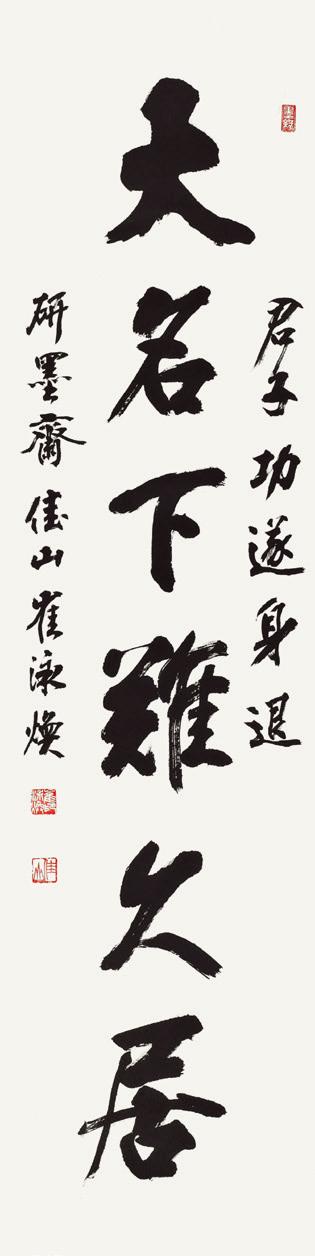 君子功遂身退
大名下難久居
研墨齋佳山崔泳煥